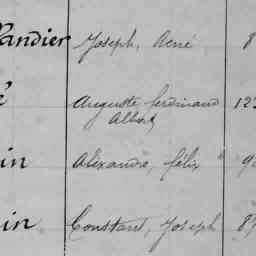 andier Joseph, René 8
é Auguste ferdinand 12
Albert
in Alexandre, félix 9
in Constant, Joseph 8